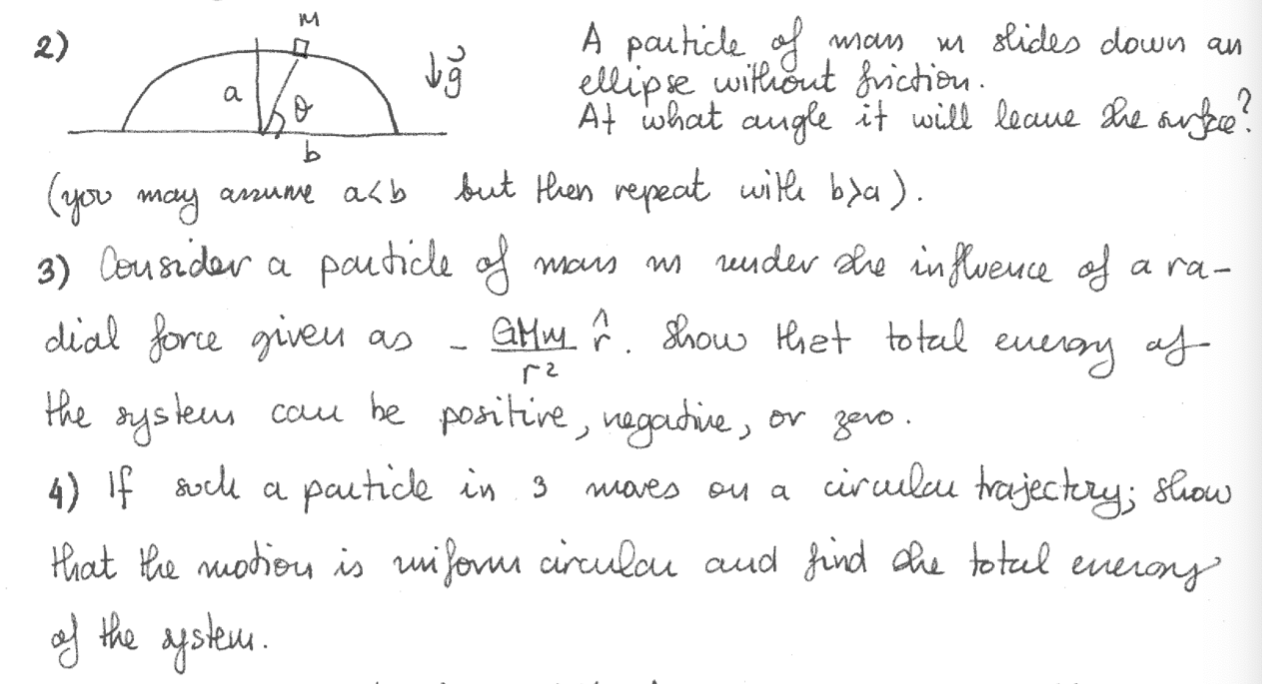 2)
M
a
θ
b
↓g⃗
A particle of mass m slides down an
ellipse without friction.
At what angle it will leave the surface?
(you may assume a<b but then repeat with b>a).
3) Consider a particle of mass m under the influence of a ra-
dial force given as - GMm/r² r̂. Show that total energy of
the system can be positive, negative, or zero.
4) If such a particle in 3 moves on a circular trajectory; show
that the motion is uniform circular and find the total energy
of the system.